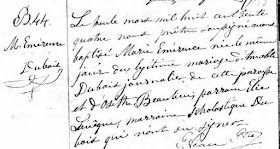 B.44.
M. Emérence
Dubois
Le huit mars mil huit cent trente
quatre nous prêtre soussigné avons
baptisé Marie Emérence née le même
jour du légitime mariage d'Amable
Dubois journalier de cette paroisse
et d'Osithe Beaulieu parrain Elie
Lévêque, marraine Scholastique Du-
bois qui n'ont su signer